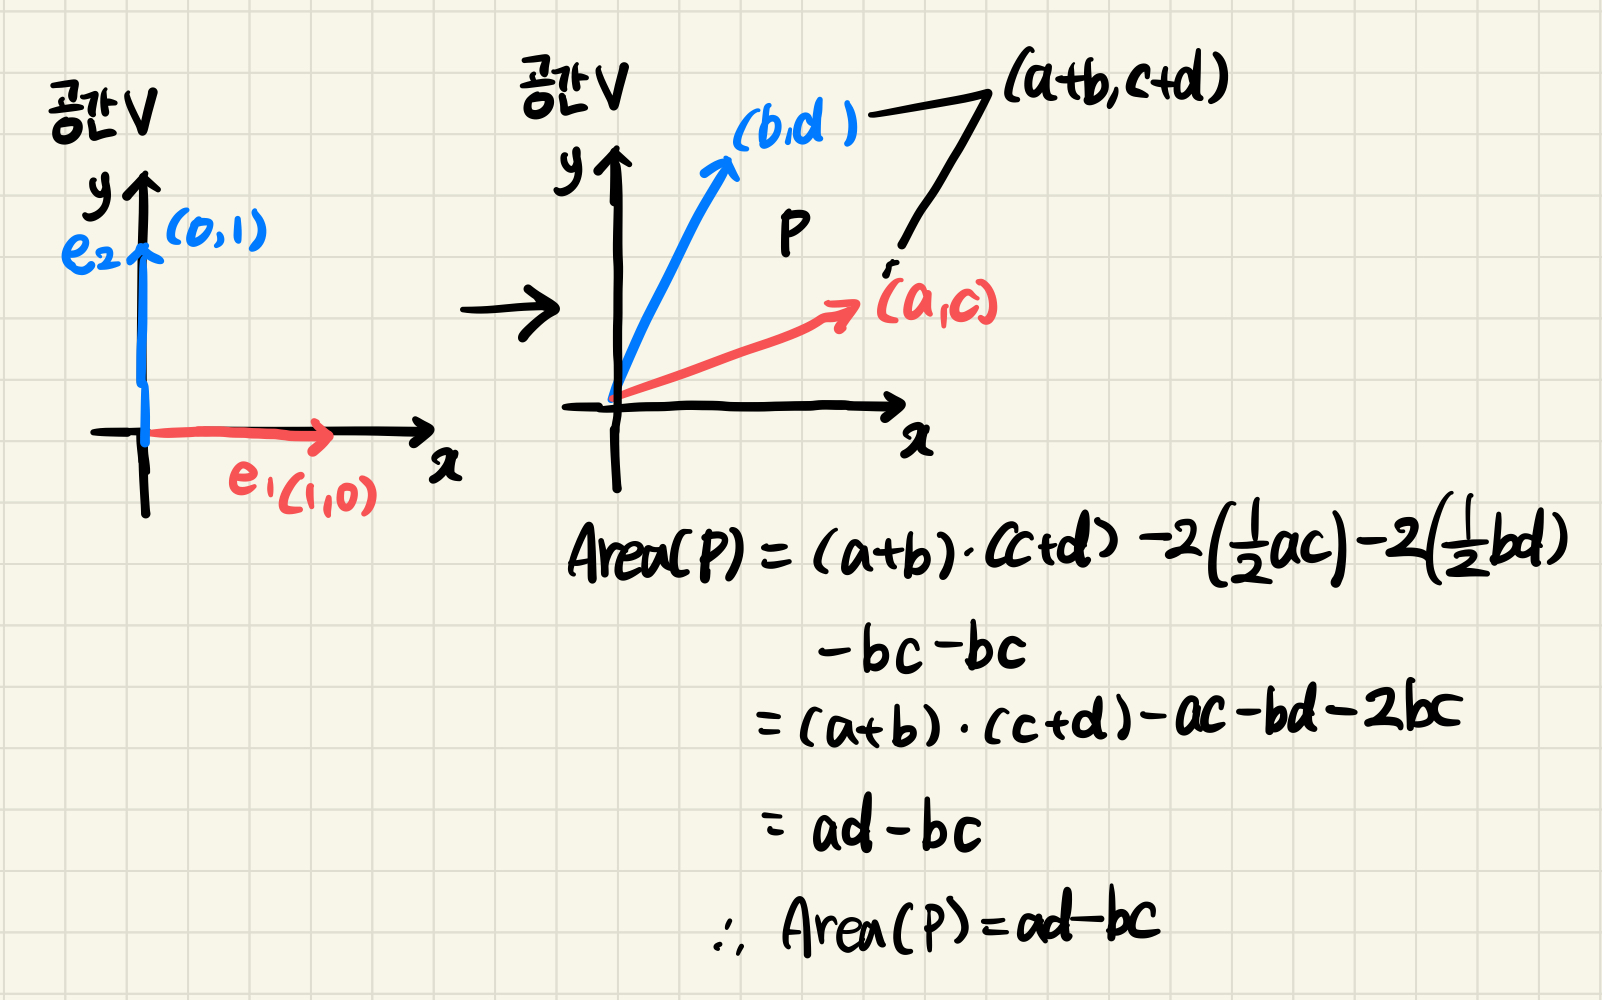 공간V
y
e2 (0,1)
x
e1(1,0)
공간V
(a+b,c+d)
(b,d)
y
P
(a,c)
x
Area(P) = (a+b)·(c+d) -2(1/2ac)-2(1/2bd)
-bc-bc
= (a+b)·(c+d)-ac-bd-2bc
= ad-bc
∴ Area(P)=ad-bc